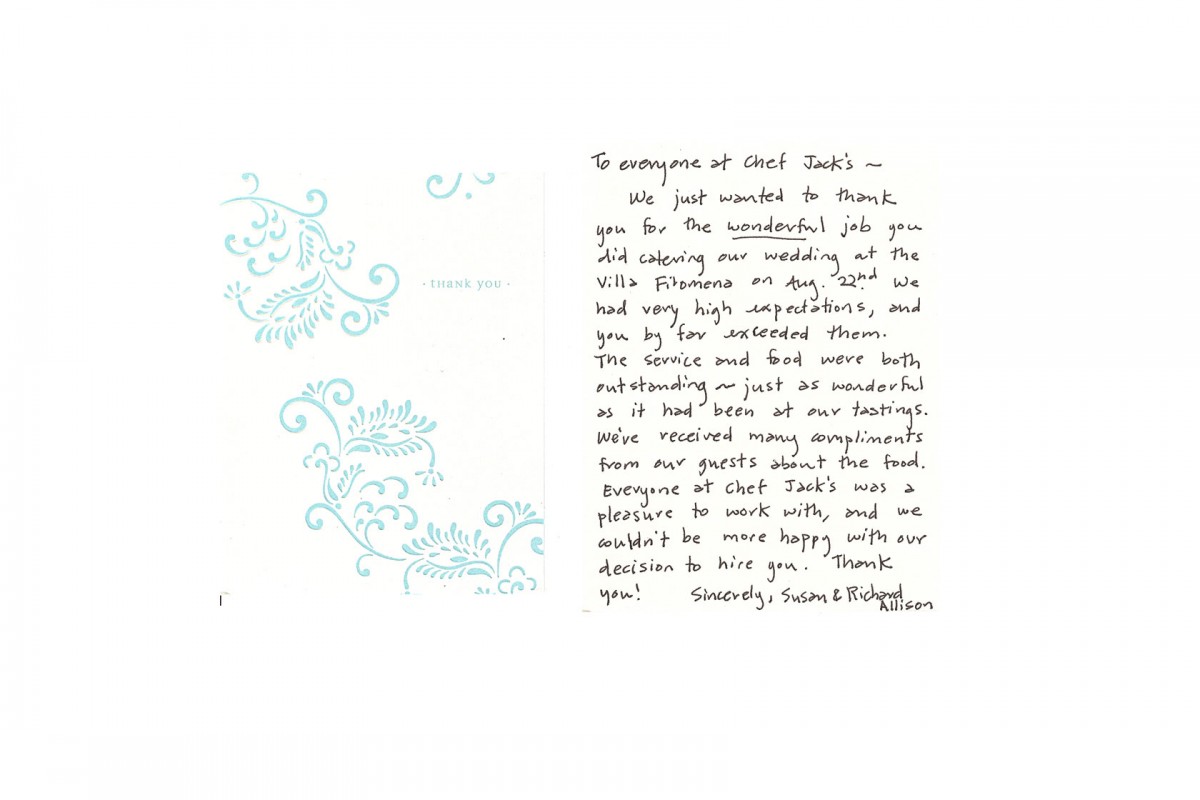 · thank you ·
To everyone at Chef Jack's ~
We just wanted to thank
you for the wonderful job you
did catering our wedding at the
Villa Filomena on Aug. 22nd. We
had very high expectations, and
you by far exceeded them.
The service and food were both
outstanding ~ just as wonderful
as it had been at our tastings.
We've received many compliments
from our guests about the food.
Everyone at Chef Jack's was a
pleasure to work with, and we
couldn't be more happy with our
decision to hire you. Thank
you! Sincerely, Susan & Richard
Allison